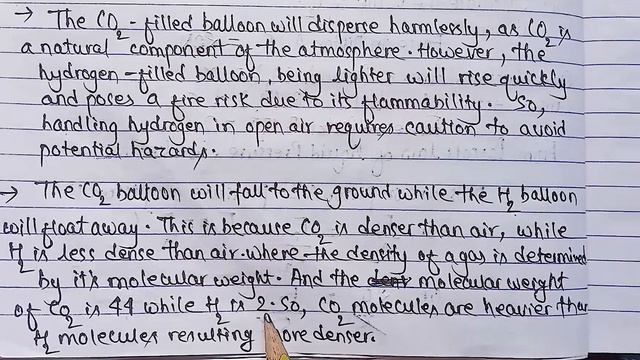 → The CO2 - filled balloon will disperse harmlessly, as CO2 is
a natural component of the atmosphere. However, the
hydrogen - filled balloon, being lighter will rise quickly
and poses a fire risk due to its flammability. So,
handling hydrogen in open air requires caution to avoid
potential hazards.
→ The CO2 balloon will fall to the ground while the H2 balloon
will float away. This is because CO2 is denser than air, while
H2 is less dense than air. where the density of a gas is determined
by it's molecular weight. And the molecular weight
of CO2 is 44 while H2 is 2. So, CO2 molecules are heavier than
H2 molecules resulting denser.